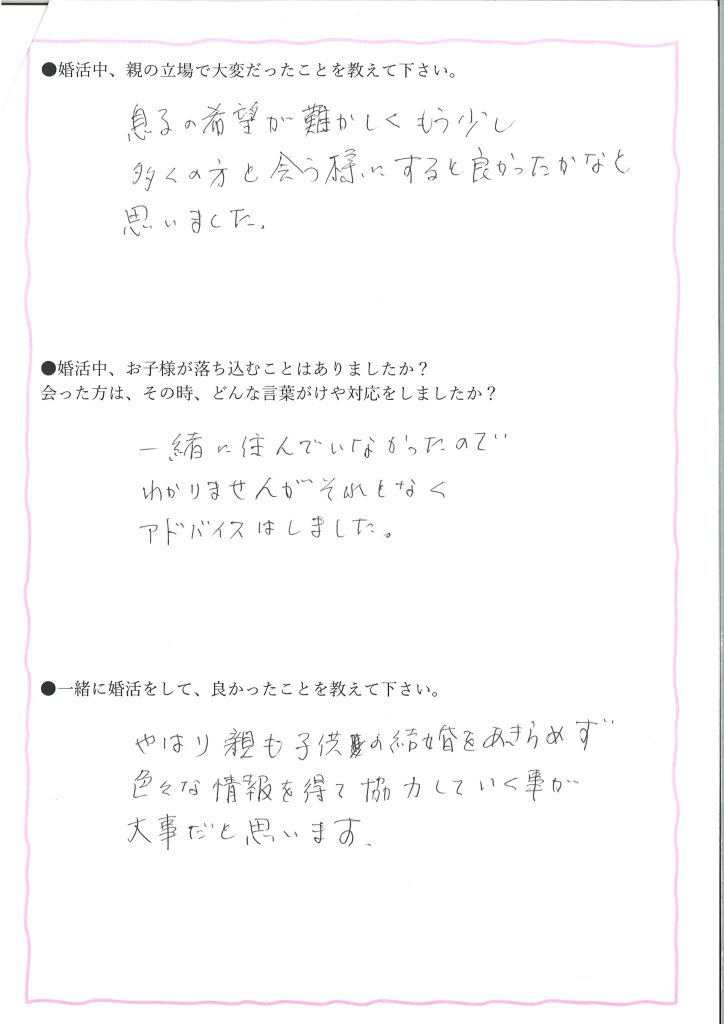 ●婚活中、親の立場で大変だったことを教えて下さい。
息子の希望が難かしくもう少し
多くの方と会う様にすると良かったかなと
思いました。
●婚活中、お子様が落ち込むことはありましたか？
会った方は、その時、どんな言葉がけや対応をしましたか？
一緒に住んでいなかったので
わかりませんがそれとなく
アドバイスはしました。
●一緒に婚活をして、良かったことを教えて下さい。
やはり親も子供の結婚をあきらめず
色々な情報を得て協力していく事が
大事だと思います、